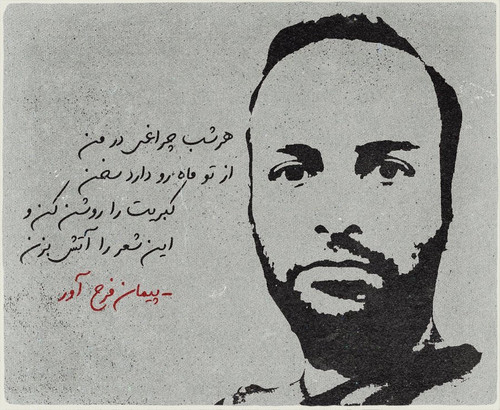 هرشب چراغی در من
از تو ماه رو دارد سخن
کبریت را روشن کن و
این شعر را آتش بزن
- پیمان فرح آور